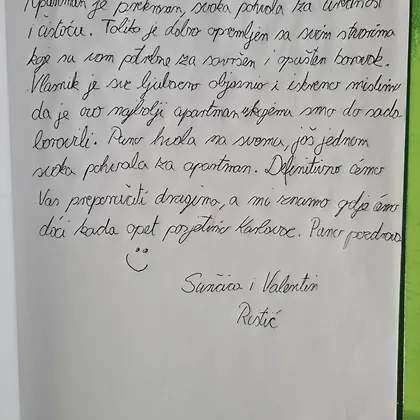 Apartman je prekrasan, svaka pohvala za urednost
i čistoću. Toliko je dobro opremljen sa svim stvarima
koje su vam potrebne za savršen i opušten boravak.
Vlasnik je sve ljubazno objasnio i iskreno mislimo
da je ovo najbolji apartman u kojemu smo do sada
boravili. Puno hvala na svemu, još jednom
svaka pohvala za apartman. Definitivno ćemo
Vas preporučiti drugima, a mi znamo gdje ćemo
doći kada opet posjetimo Karlovac. Puno pozdrava
Sunčica i Valentin
Ristić